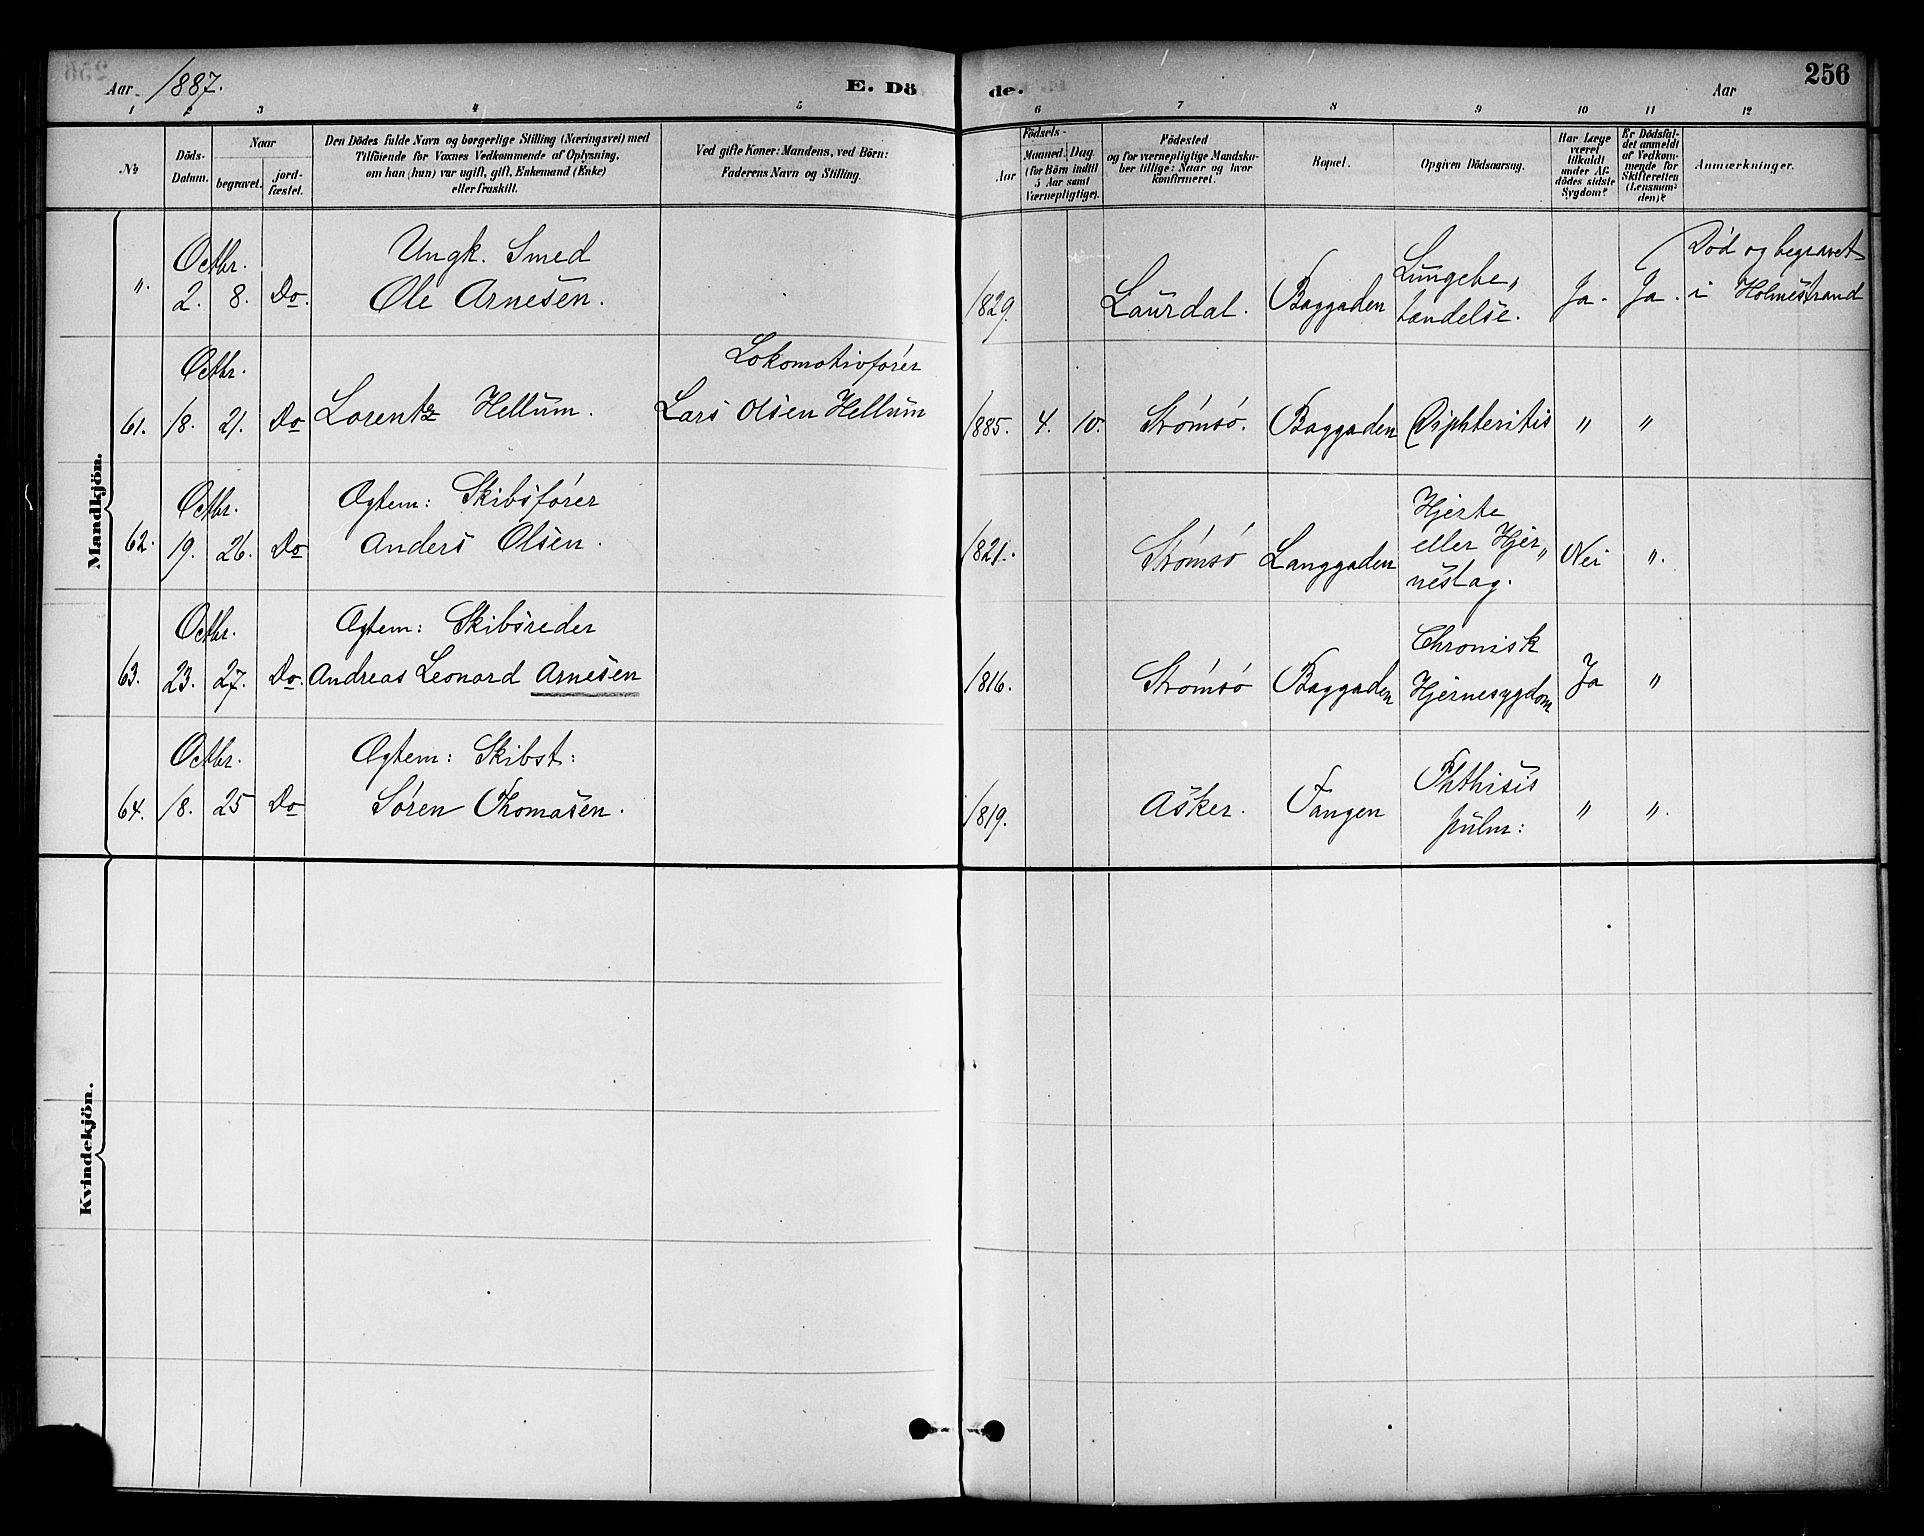 Aar 1887. E. Dö
de. Aar 256
1 2 3 4 5
6 7 8 9 10 11 12
No
Döds-
Datum.
Naar
begravet.
jord-
fæstet.
Den Dödes fulde Navn og borgerlige Stilling (Næringsvei) med
Tilföiende for Voxnes Vedkommende af Oplysning,
om han (hun) var ugift, gift, Enkemand (Enke)
eller fraskilt.
Ved gifte Koner: Mandens, ved Börn:
Faderens Navn og Stilling.
Födsels-
Aar
Maaned. Dag
(for Börn indtil
5 Aar samt
Værnepligtige).
Födested
og for værnepligtige Mandska-
ber tillige: Naar og hvor
konfirmeret.
Bopæl.
Opgiven Dödsaarsag.
Har Læge
været
tilkaldt
under Af-
dödes sidste
Sygdom?
Er Dödsfal-
det anmeldt
af Vedkom-
mende for
Skifteretten
(Lensman-
den)?
Anmærkninger.
Mandkjön.
Octbr. Ungk. Smed
". 2. 8. Do. Ole Arnesen.
1829. Laurdal. Baggaden Lungebe„
tændelse. Ja. Ja. Död og begravet
i Holmestrand
Octbr. Lokomotivförer
61. 18. 21. Do Lorentz Hellum. Lars Olsen Hellum
1885. 4. 10. Strömsö. Baggaden Diphteritis " "
Octbr. Ægtem: Skibsförer
62. 19. 26. Do Anders Olsen.
1821. Strömsö Langgaden Hjerte
eller Hjer„
neslag. Nei ".
Octbr. Ægtem: Skibsreder
63. 23. 27. Do. Andreas Leonard Arnesen
1816. Strömsö Baggaden Chronisk
Hjernesygdom Ja "
Octbr. Ægtem: Skibst:
64. 18. 25 Do Sören Thomasen.
1819. Asker. Tangen Phthisis
pulm: " ".
Kvindekjön.